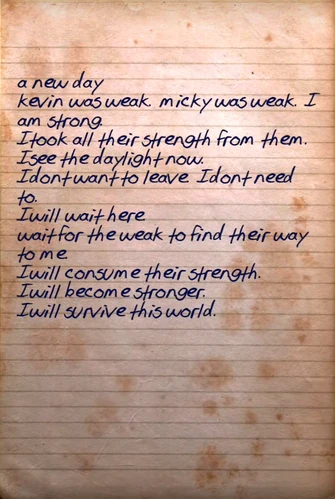 a new day
kevin was weak. micky was weak. I
am strong.
I took all their strength from them.
I see the daylight now.
I dont want to leave I dont need
to.
I will wait here
wait for the weak to find their way
to me
I will consume their strength.
I will become stronger.
I will survive this world.